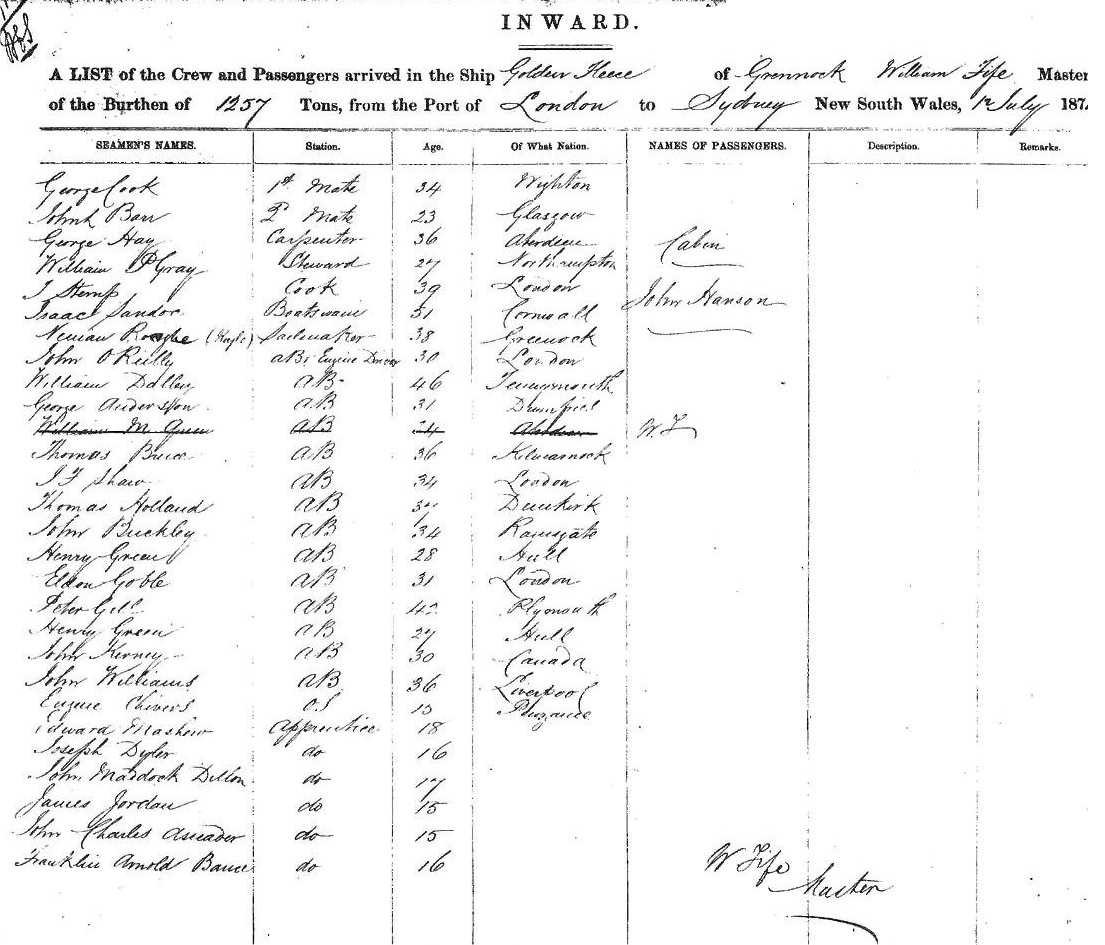 INWARD.
A LIST of the Crew and Passengers arrived in the Ship Golden Fleece of Grennock William Fife Master
of the Burthen of 1257 Tons, from the Port of London to Sydney New South Wales, July 187
SEAMEN'S NAMES. Station. Age. Of What Nation. NAMES OF PASSENGERS. Description. Remarks.
George Cook 1st Mate 34 Wighton
Barr 2d Mate 23 Glasgow
George Hay Carpenter 36 Aberdeen Cabin
William P Gray Steward 27 Northampton
J Stemp Cook 39 London John Hanson
Isaac Boatswain 51 Cornwall
(Hayle) Sailmaker 38 Greenock
John O'Reilly AB; Engine Driver 30 London
William Dalley AB 46
George Andersson AB 31 Dumfries
William M. Green AB 24 Aberdeen W. F
Thomas Bruce AB 36 Kilmarnock
Shaw AB 34 London
Thomas Holland AB Dunkirk
John Buckley AB 34 Ramsgate
Henry Green AB 28 Hull
Goble AB 31 London
Peter Gill AB Plymouth
Henry Green AB 27 Hull
John Kerney AB 30 Canada
John Williams AB 36 Liverpool
Eugene Chivers OS
Edward Mashew Apprentice 18
Joseph Dyler do 16
John Maddock Dillon do 17
James Jordan do 15
John Charles do 15
Franklin Arnold do 16
W Fife
Master